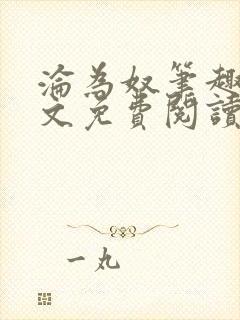 淪為奴筆趣
文免費閱讀
一丸